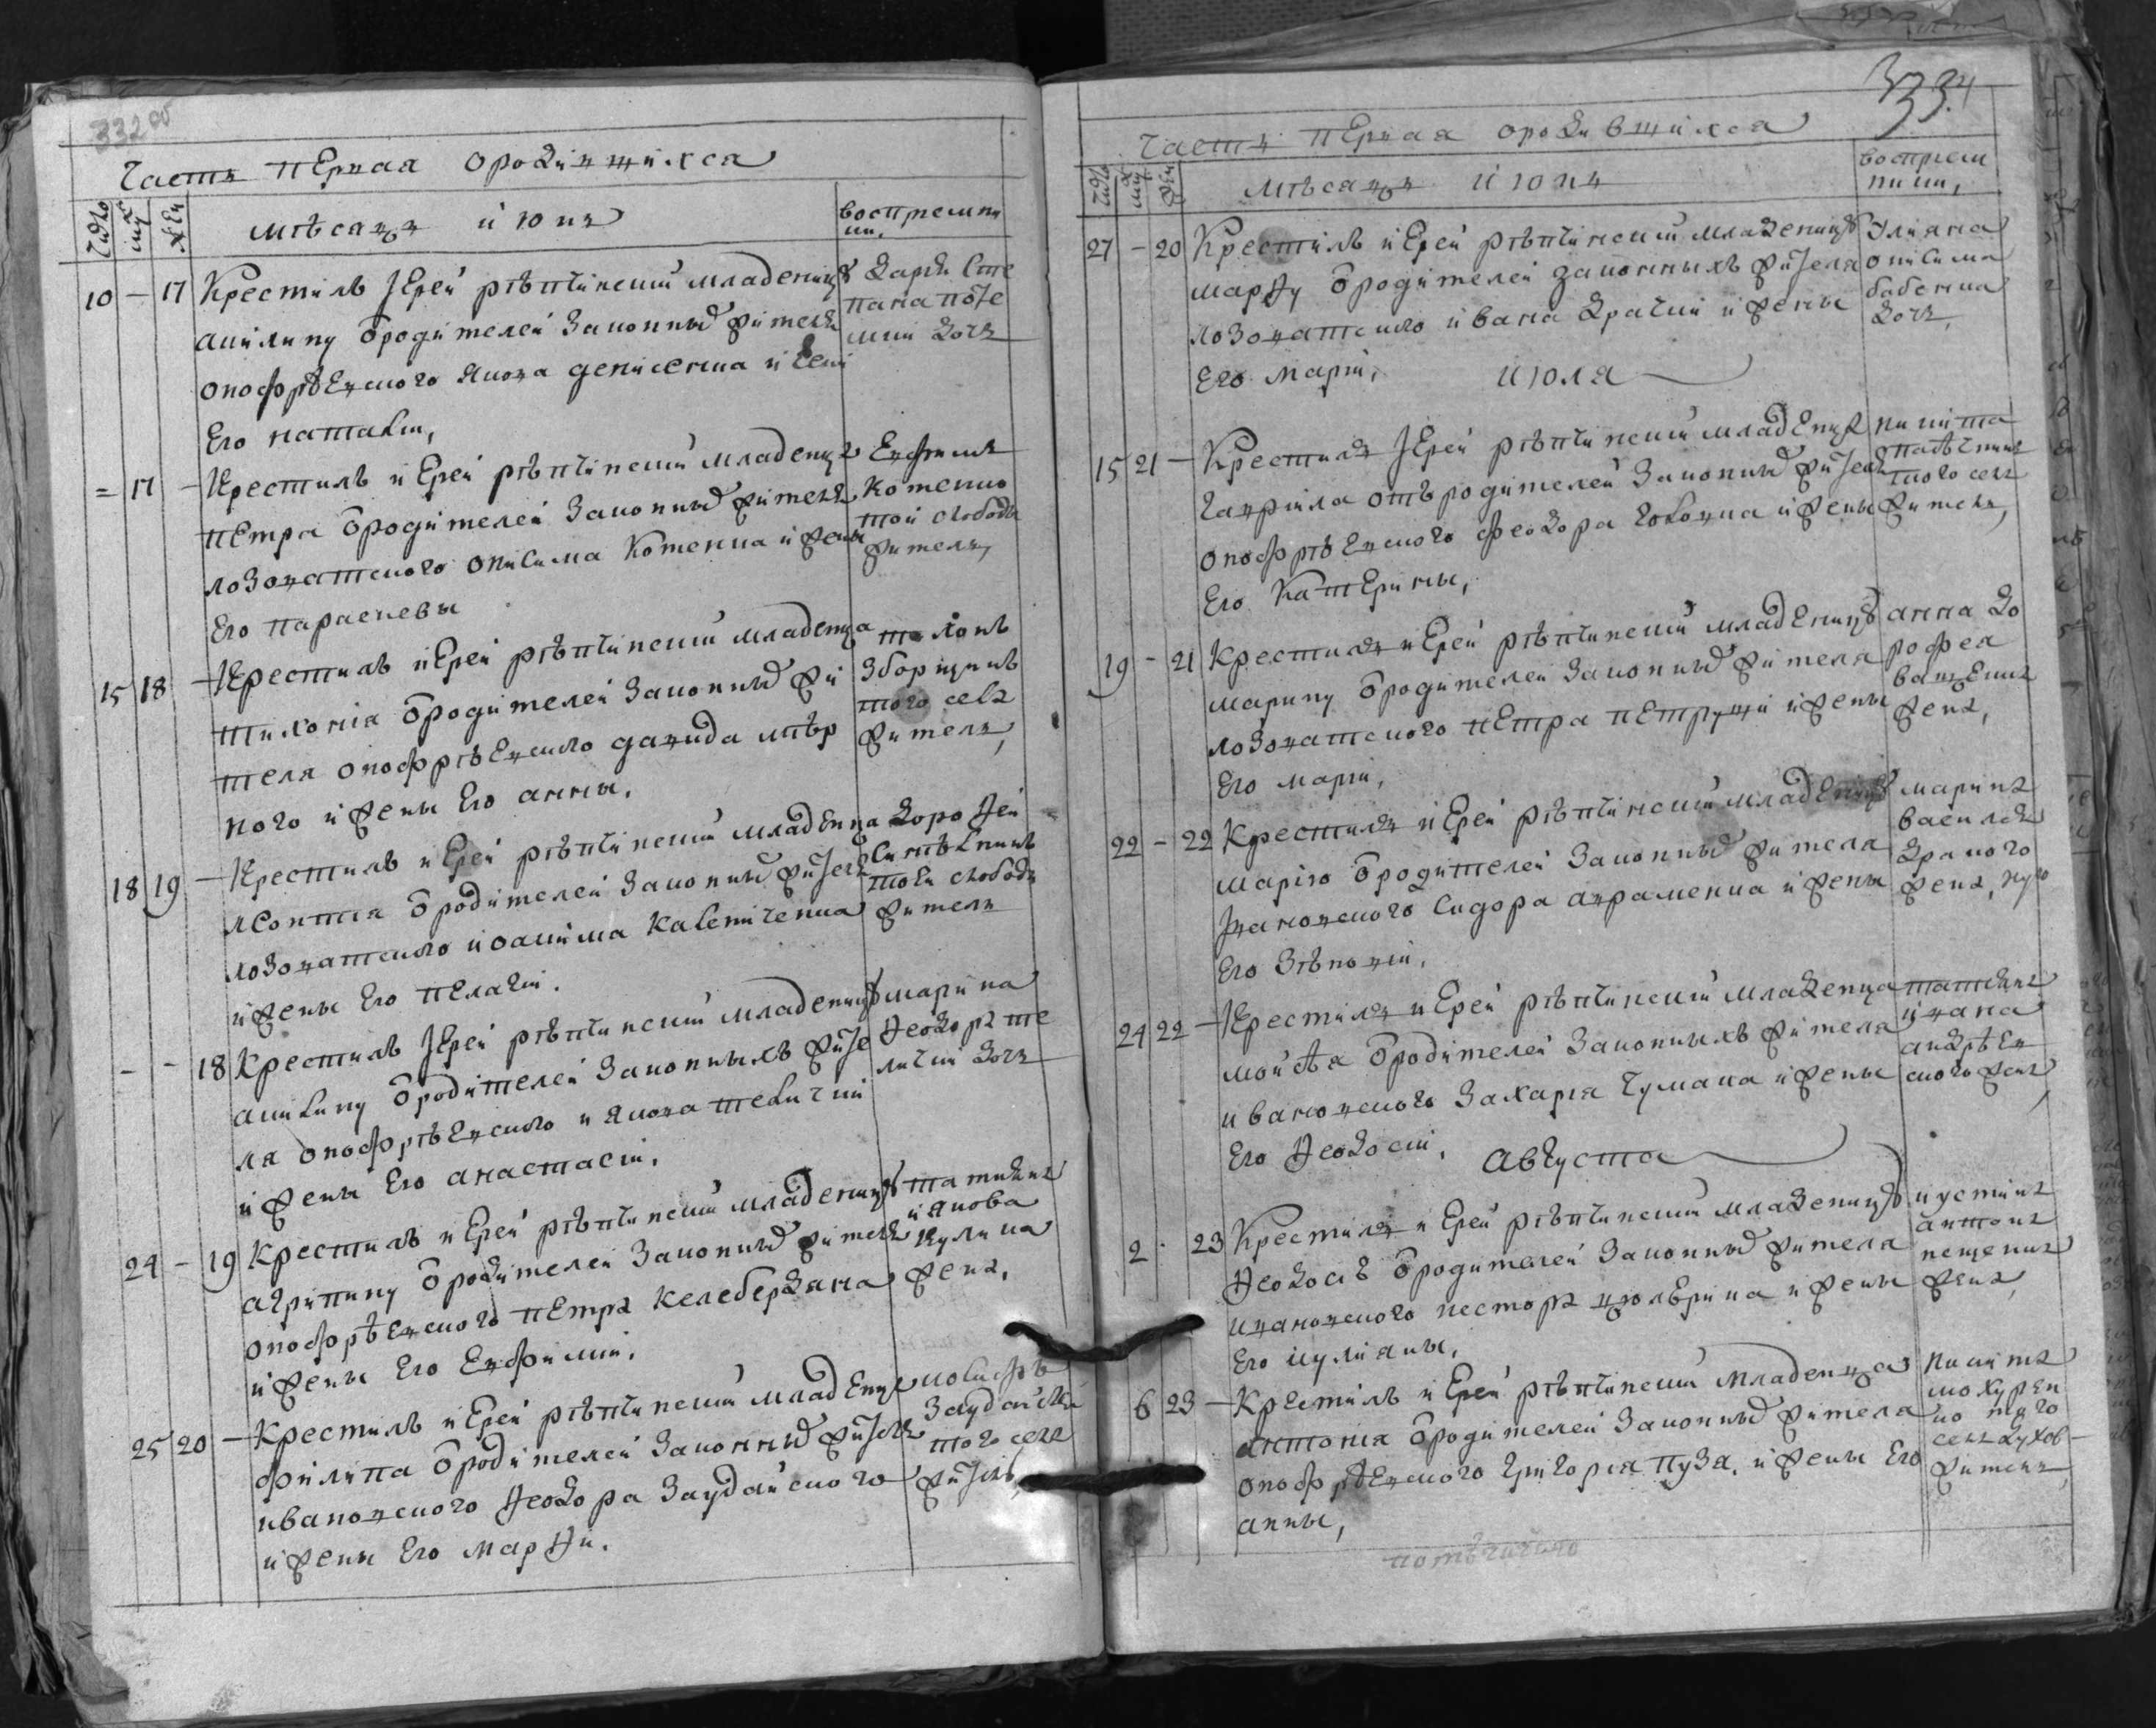 332 об
Часть первая о родившихся
число
муж
жен
мѣсяцъ июнъ
восприемни
ки,
10 – 17 Крестилъ Іерей рѣпѣнский младеницу
акилину ѿ родителей законных жителя
оноѳрѣевского якова денисенка и жени
Его наталіи,
Дарія Сте
пана
дочь
= 17 – Крестилъ иЕрей рѣпѣнский младенца
пЕтра ѿ родителей законных жителя
лозоватского онисима Котенка и жены
Его параскевы
Евфимъ
Котенко
той слободы
житель,
15 18 – Крестилъ иЕрей рѣпѣнский младенца
тихонія ѿ родителей законных жи
теля оноѳрѣевского давида мѣр
ного и жены Его анны.
Зборщикъ
того села
житель,
18 19 – Крестилъ иЕрей рѣпѣнский младенца
леонтія ѿ родителей законных жителя
лозоватского иоакима
и жены Его пелагіи.
дороѳей
той слободи
житель
- - 18 Крестилъ Іерей рѣпѣнский младеницу
акилину ѿ родителей законныхъ жите
ля оноѳрѣевского якова телички
и жены Его анастасіи.
марина
Ѳеодора те
лички дочь
24 – 19 Крестилъ иЕрей рѣпѣнский младеницу
агрипину ѿ родителей законных жителя
оноѳрѣевского пЕтра келебердана
и жены Его Евфимии.
татияна
якова
кулика
жена.
25 20 – Крестилъ иЕрей рѣпѣнский младенца
филипа ѿ родителей законных жителя
ивановского Ѳеодора Заудайского
и жены Его марѳи.
иосифъ
Заудайски
того села
житель,
334
Часть пЕрвая о родившихся
число
муж
жен
мѣсяцъ июнъ
восприем
ники,
27 – 20 Крестилъ иЕрей рѣпѣнский младеницу
марѳу ѿ родителей законныхъ жителя
лозоватского ивана драчки и жены
Его маріи,
Улияна
онисима
бабенка
дочь,
июля
15 21 – Крестилъ Іерей рѣпѣнский младенца
гавриила отъ родителей законных жителя
оноѳрѣевского ѳеодора и жены
Его Катерины,
никита
того села
житель,
19 – 21 Крестилъ иЕрей рѣпѣнский младеницу
марину ѿ родителей законных жителя
лозоватского пЕтра пЕтрушки и жены
Его маріи,
анна до
роѳея
жена,
22 – 22 Крестилъ иЕрей рѣпѣнский младеницу
марію ѿ родителей законных жителя
ивановского Сидора авраменка и жены
Его Зѣновіи,
марина
василя
жена,
24 22 – Крестилъ иЕрей рѣпѣнский младенца
моисѣя ѿ родителей законныхъ жителя
ивановского Захарія чумака и жены
Его Ѳеодосіи,
татияна
ивана
андрѣев
ского жена
Августа
2 · 23 Крестилъ иЕрей рѣпѣнский младеницу
Ѳеодосію ѿ родителей законных жителя
ивановского нестора и жены
Его иулияны,
иустина
антона
жена,
6 23 – Крестилъ иЕрей рѣпѣнский младенца
антонія ѿ родителей законных жителя
оноѳрѣевского григорія пузя, и жены Его
анны,
никита
того
села
житель,